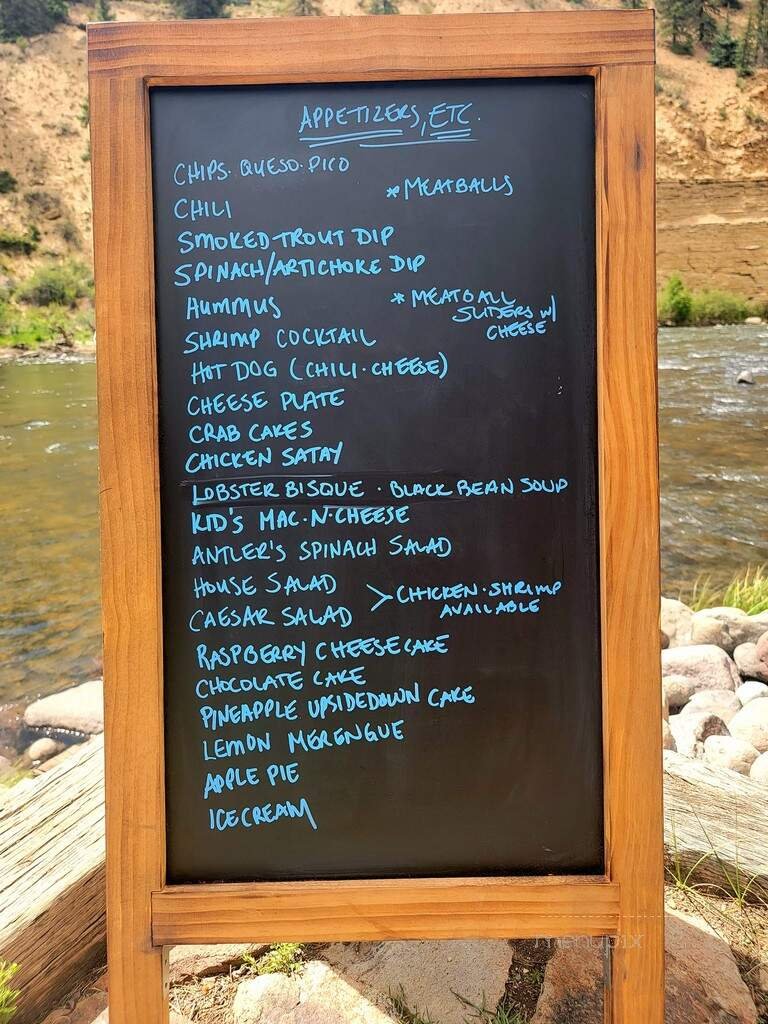 APPETIZERS, ETC.
CHIPS · QUESO · PICO
* MEATBALLS
CHILI
SMOKED TROUT DIP
SPINACH/ARTICHOKE DIP
HUMMUS
* MEATBALL
SLIDERS w/
CHEESE
SHRIMP COCKTAIL
HOT DOG (CHILI · CHEESE)
CHEESE PLATE
CRAB CAKES
CHICKEN SATAY
LOBSTER BISQUE · BLACK BEAN SOUP
KID'S MAC·N·CHEESE
ANTLER'S SPINACH SALAD
HOUSE SALAD
> CHICKEN · SHRIMP
AVAILABLE
CAESAR SALAD
RASPBERRY CHEESECAKE
CHOCOLATE CAKE
PINEAPPLE UPSIDEDOWN CAKE
LEMON MERENGUE
APPLE PIE
ICE CREAM
menupix